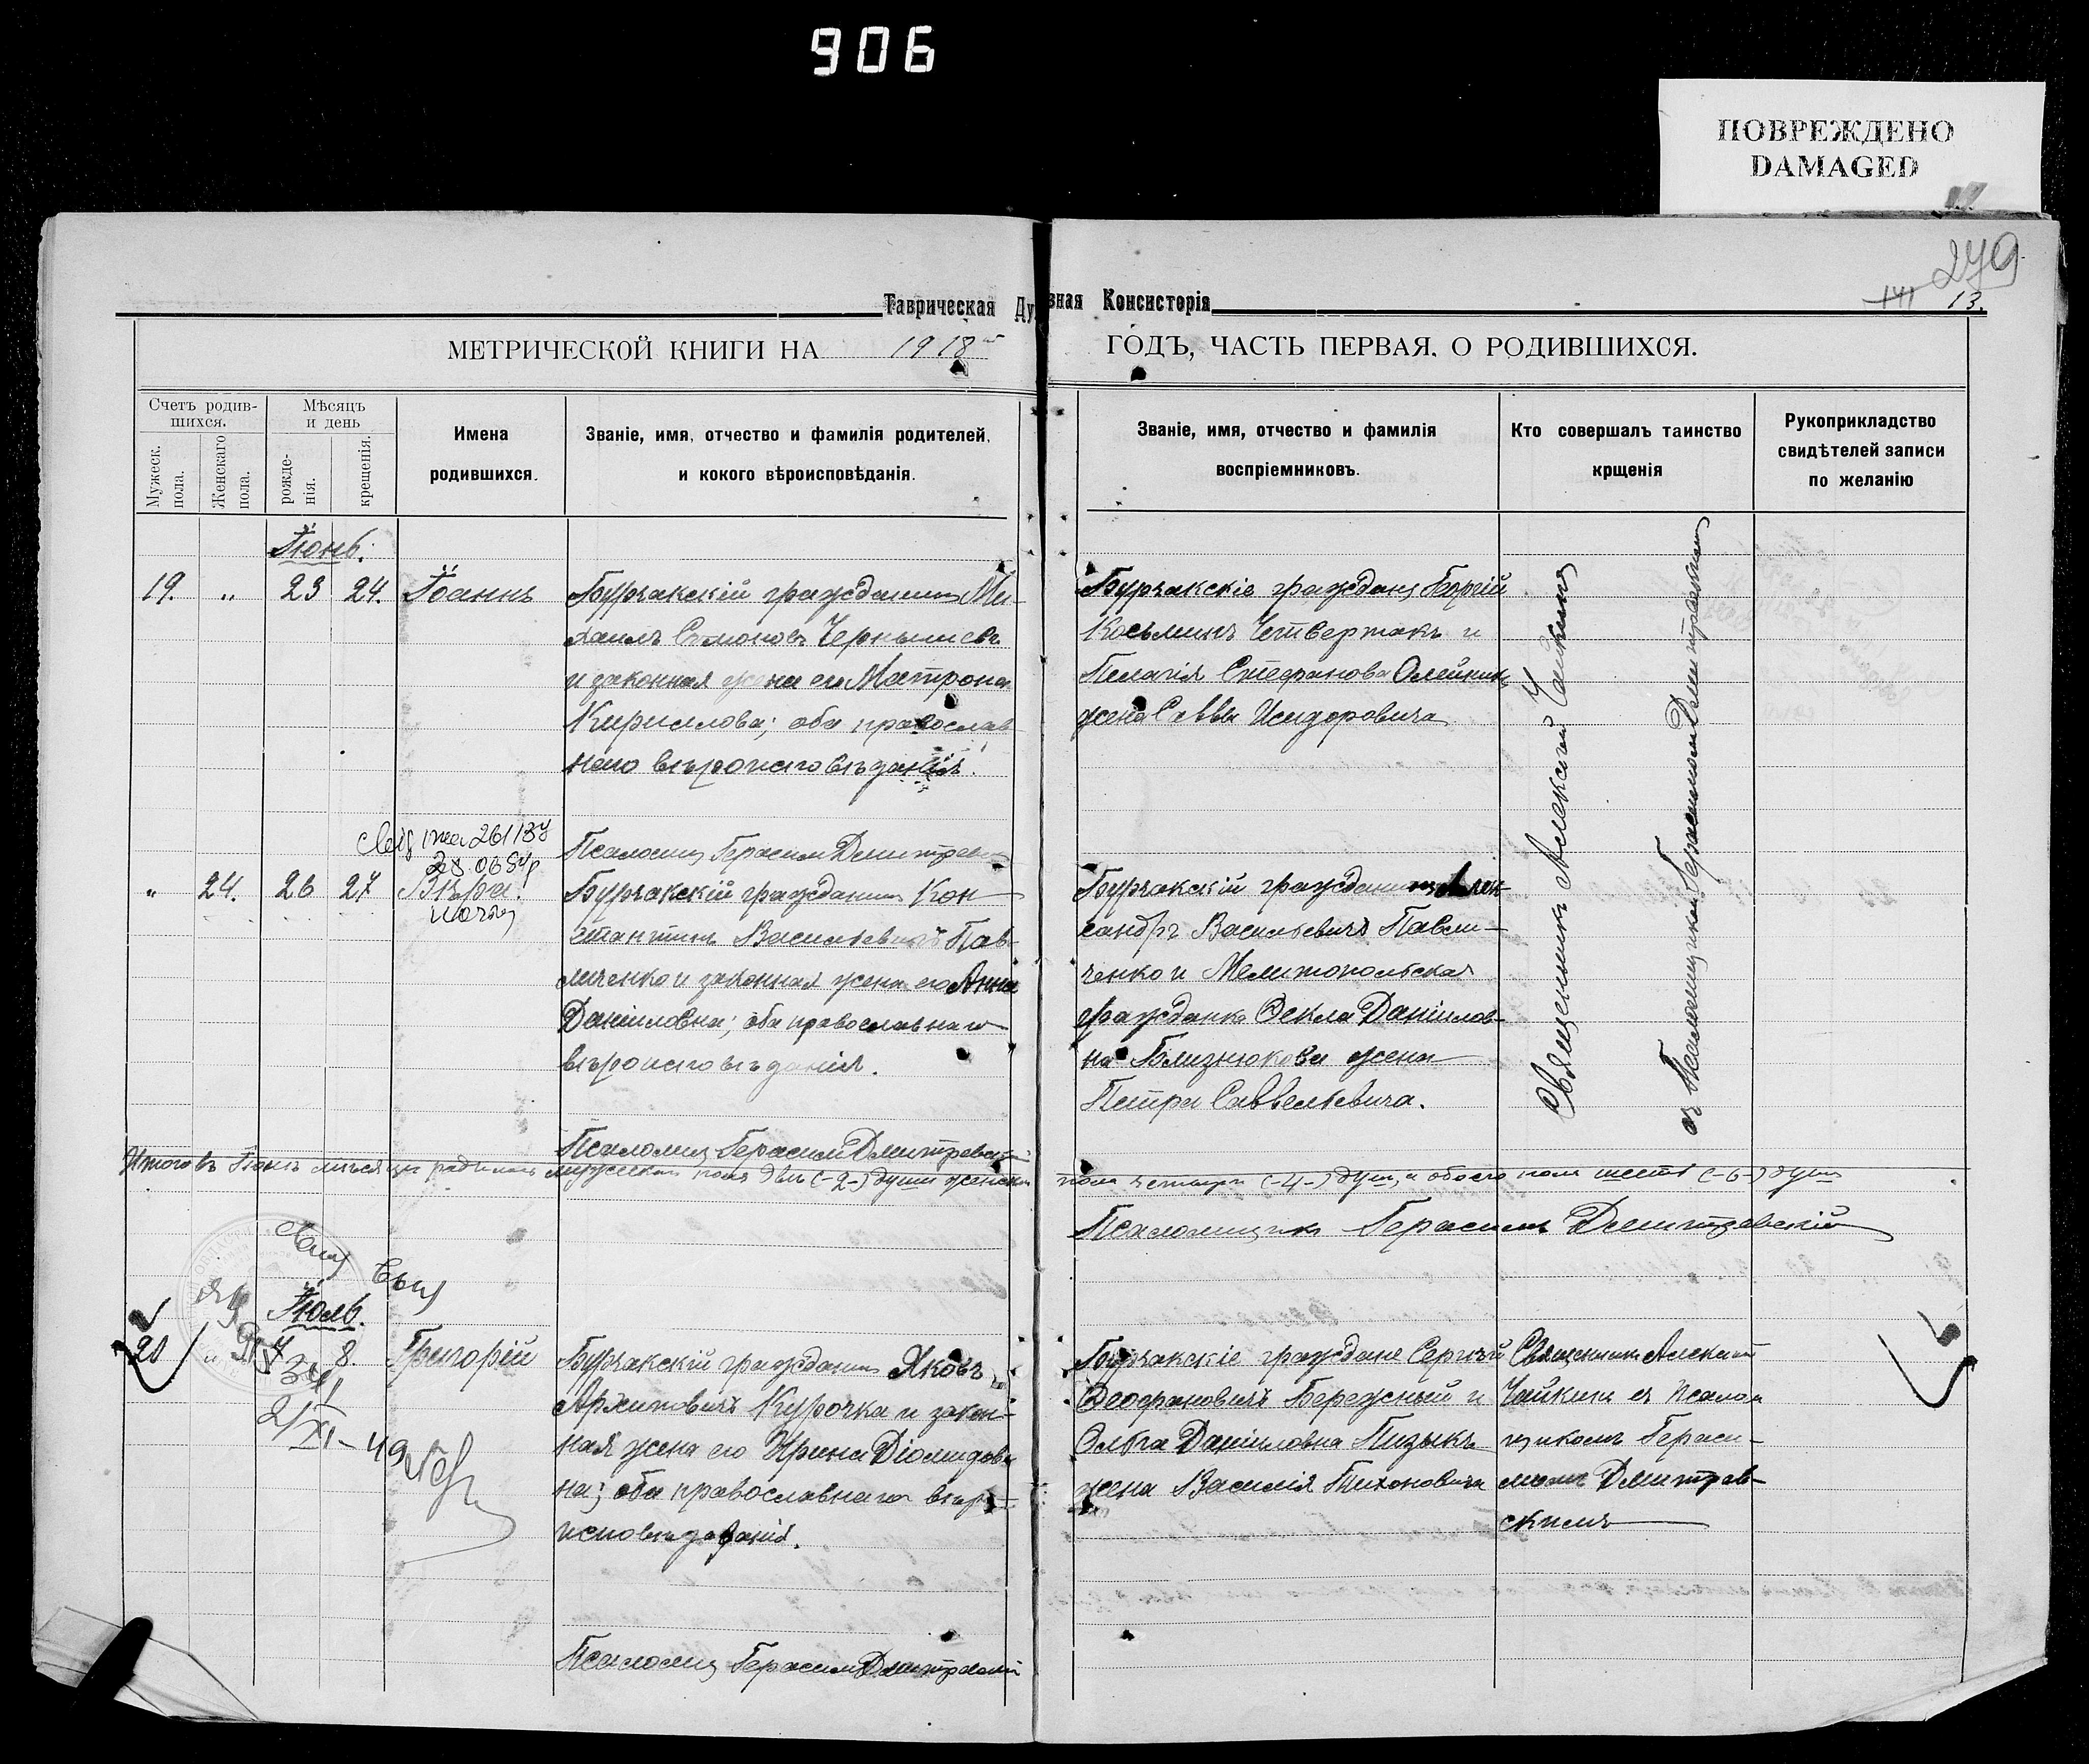 906
ПОВРЕЖДЕНО
DAMAGED
279
141 13.
Таврическая Ду вная Консисторія
МЕТРИЧЕСКОЙ КНИГИ НА 1918 ГОДЪ, ЧАСТЬ ПЕРВАЯ. О РОДИВШИХСЯ.
Счетъ родив-
шихся.
Мужеск.
пола.
Женскаго
пола.
Мѣсяцъ
и день
рожде-
нія.
крещенія.
Имена
родившихся.
Званіе, имя, отчество и фамилія родителей,
и кокого вѣроисповѣданія.
Званіе, имя, отчество и фамилія
воспріемниковъ.
Кто совершалъ таинство
крщенія
Рукоприкладство
свидѣтелей записи
по желанію
Іюнь.
19. „ 23 24. Іоаннъ
Бурчакскій гражданинъ Ми-
хаилъ Симоновъ Чернышевъ
и законная жена его Матрона
Кирилова; оба православ
наго вѣроисповѣданія.
Псаломщ Герасим Дмитревскій
Бурчакскіе граждане Георгій
Косьминъ Четвертакъ и
Пелагія Стефанова Олейникъ
жена Саввы Исидоровича
Священникъ Алексѣй Чайкинъ
съ Псаломщикомъ Герасимомъ Дмитревскимъ
„ 24. 26 27 Вѣра.
Бурчакскій гражданинъ Кон
стантинъ Васильевичъ Пав-
личенко и законная жена его Анна
Даніиловна; оба православнаго
вѣроисповѣданія.
Псаломщ Герасим Дмитревскій
Бурчакскій гражданинъ Алек-
сандръ Васильевичъ Павли-
ченко и Мелитопольская
гражданка Ѳекла Даніилов-
на Близнюкова жена
Петра Савельевича.
Итого въ Іюнѣ мѣсяцѣ родилось мужскаго пола двѣ (-2-) души женскаго пола четыре (-4-) душ, а обоего пола шесть (-6-) душ
Псаломщикъ Герасимъ Дмитревскій
Іюль.
20 „ 7 8. Григорій
21/XI-49
Бурчакскій гражданинъ Яковъ
Архиповичъ Курочка и закон-
ная жена его Ирина Діомидов
на; оба православнаго вѣро-
исповѣданія.
Псаломщ Герасим Дмитревскій
Бурчакскіе граждане Сергѣй
Ѳеофановичъ Бережный и
Ольга Даніиловна Пизыкъ
жена Василія Тихоновича
Священникъ Алексѣй
Чайкинъ съ псалом
щикомъ Гераси-
момъ Дмитрев-
скимъ